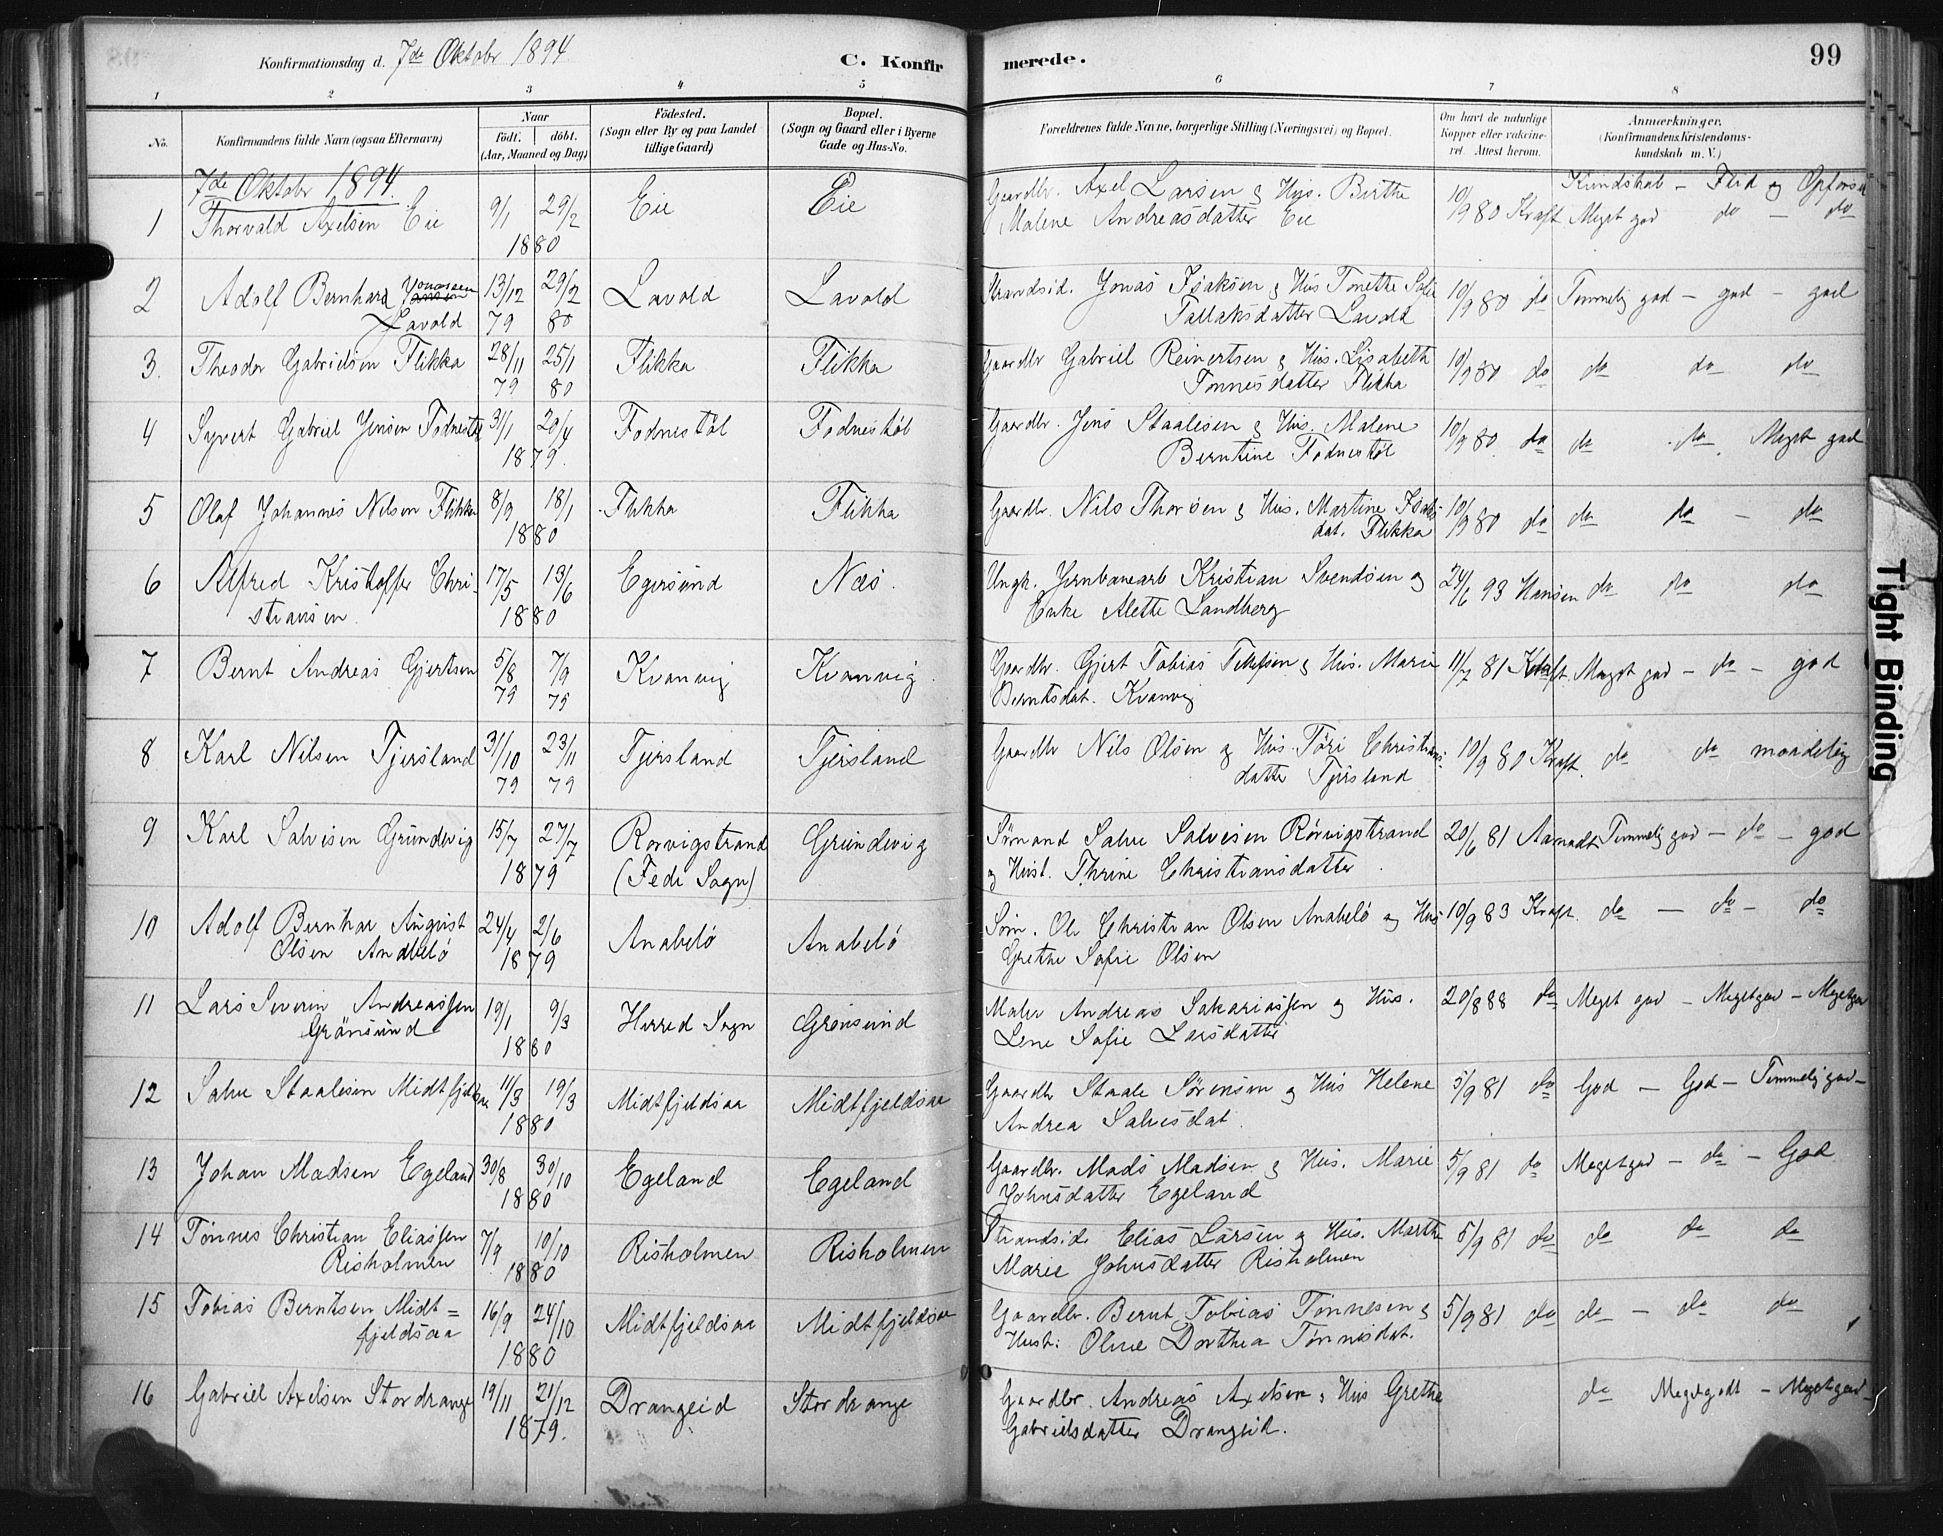 Konfirmationsdag d. 7de Oktobr 1894. C. Konfirmerede. 99
1 2 3 4 5 6 7 8
No. Konfirmandens fulde Navn (ogsaa Efternavn) Naar födt. döbt. (Aar, Maaned og Dag) Födested. (Sogn eller By og paa Landet tillige Gaard) Bopæl. (Sogn og Gaard eller i Byerne Gade og Hus-No. Forældrenes fulde Navne, borgerlige Stilling (Næringsvei) og Bopæl. Om havt de naturlige Kopper eller vaccineret. Attest herom. Anmærkninger. (Konfirmandens Kristendomskundskab m. V.)
7de Oktobr 1894. Kundskab - Flid og Opførsel
1 Thorvald Axelsen Eie 9/1 29/2 1880 Eie Eie Gaardbr. Axel Larsen & Hus. Birthe 10/9 80 Kraft Meget god do - do
Malene Andreasdatter Eie
2 Adolf Bernhard Jonassen 13/12 29/2 Lavold Lavold Strandsid. Jonas Isaksen & Hus Tonette Sofie 10/9 80 do Temmelig god - god - god
Lavold 79 80 Tallaksdatter Lavold
3. Theodor Gabrielsen Flikka 28/11 25/1 Flikka Flikka Gaardbr Gabriel Reinertsen & Hus. Lisabeth 10/9 80 do do do do
79 80 Tonnesdatter Flikka
4 Syvert Gabriel Jensen Fodnestøl 31/1 20/4 Fodnestøl Fodnestøl Gaardbr. Jens Staalesen & Hus. Malene 10/9 80. do do do Meget god
1879. Berntine Fodnestøl
5 Olaf Johannes Nilsen Flikka 8/9 18/1 Flikka Flikka Gaardbr. Nils Thorsen & Hus. Martine Isaks- 10/9 80 do do do - do
1880 dat. Flikka
6 Alfred Kristoffer Chri- 17/5 13/6 Egersund Næs. Ungk. Jernbanearb Kristian Svendsen og 24/6 93 Hansen do do do
stiansen. 1880 Enke Alette Landberg
7 Bernt Andreas Gjertsen 5/8 7/9 Kvanvig Kvanvig Gaardbr. Gjert Tobias Tellefsen & Hus. Marie 11/7 81 Kraft Meget god - do - god
79 79 Berntsdat. Kvanvig
8 Karl Nilsen Tjersland 31/10 23/11 Tjersland Tjersland Gaardbr Nils Olsen og Hus. Tøri Christians- 10/9 80 Kraft. do do maadelig
79 79 datter Tjersland
9 Karl Salvesen Grundevig 15/7 27/7 Rorvigstrand Grundevig Sømand Salve Salvesen Rörvigstrand 20/6 81 Aamodt Temmelig god - do - god
1879 (Fede Sogn) og Hust. Thrine Christiansdatter
10 Adolf Bernhar August 24/4 2/6 Anabelö Anabelö Søm. Ole Christian Olsen Anabelö og Hus 10/9 83 Kraft. do - do - do
Olsen Andbelö 1879 Grethe Sofie Olsen
11 Lars Severin Andreassen 19/1 9/3 Herred Sogn Grønsund Maler Andreas Sakariassen og Hus. 20/8 88 do Meget god - Megetgod - Megetgod
Grönsund 1880 Lene Sofie Larsdatter
12 Salve Staalesen Midtfjeldsaa 11/3 19/3 Midtfjeldsaa Midtfjeldsaa Gaardbr Staale Sørensen og Hus Helene 5/9 81 do God - God - Temmelig god -
1880 Andrea Salvesdat.
13 Johan Madsen Egeland 30/8 30/10 Egeland Egeland Gaardbr. Mads Madsen & Hus. Marie 5/9 81 do Megetgod - do - God
1880 Johnsdatter Egeland
14 Tönnes Christian Eliassen 7/9 10/10 Risholmen Risholmen Strandsid. Elias Larsen og Hus. Marthe 5/9 81 do do do do
Risholmen 1880 Marie Johnsdatter Risholmen
15 Tobias Berntsen Midt= 16/9 24/10 Midtfjeldsaa Midtfjeldsaa Gaardbr. Bernt Tobias Tønnesen & 5/9 81 do do - do do
fjeldsaa 1880 Hust: Oline Dorthea Tønnesdat.
16 Gabriel Axelsen Stordrange 19/11 21/12 Drangeid Stordrange Gaardbr. Andreas Axelsen & Hus Grethe do Megetgodt - Megetgod -
1879. Gabrielsdatter Drangeid.
Tight Binding